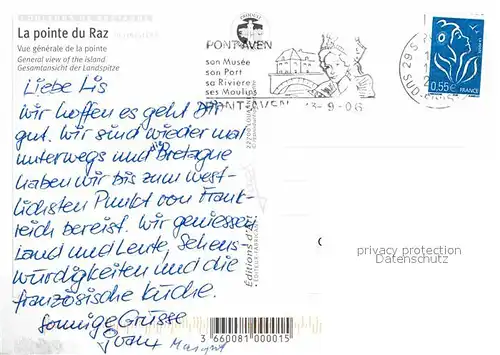 COULEURS DE BRETAGNE
La pointe du Raz
Vue générale de la pointe
General view of the island
Gesamtansicht der Landspitze
PONT-AVEN
son Musée
son Port
sa Rivière
ses Moulins
PONT-AVEN
13-9-06
29 S
SUD
0,55€
Liebe Lis
wir hoffen es geht Dir
gut. Wir sind wieder mal
unterwegs und die Bretagne
haben wir bis zum west-
lichsten Punkt von Frank-
reich bereist. Wir geniessen
Land und Leute, Sehens-
würdigkeiten und die
französische Küche.
Sonnige Grüsse
Editions d'Art
privacy protection
Datenschutz
3 660081 000015